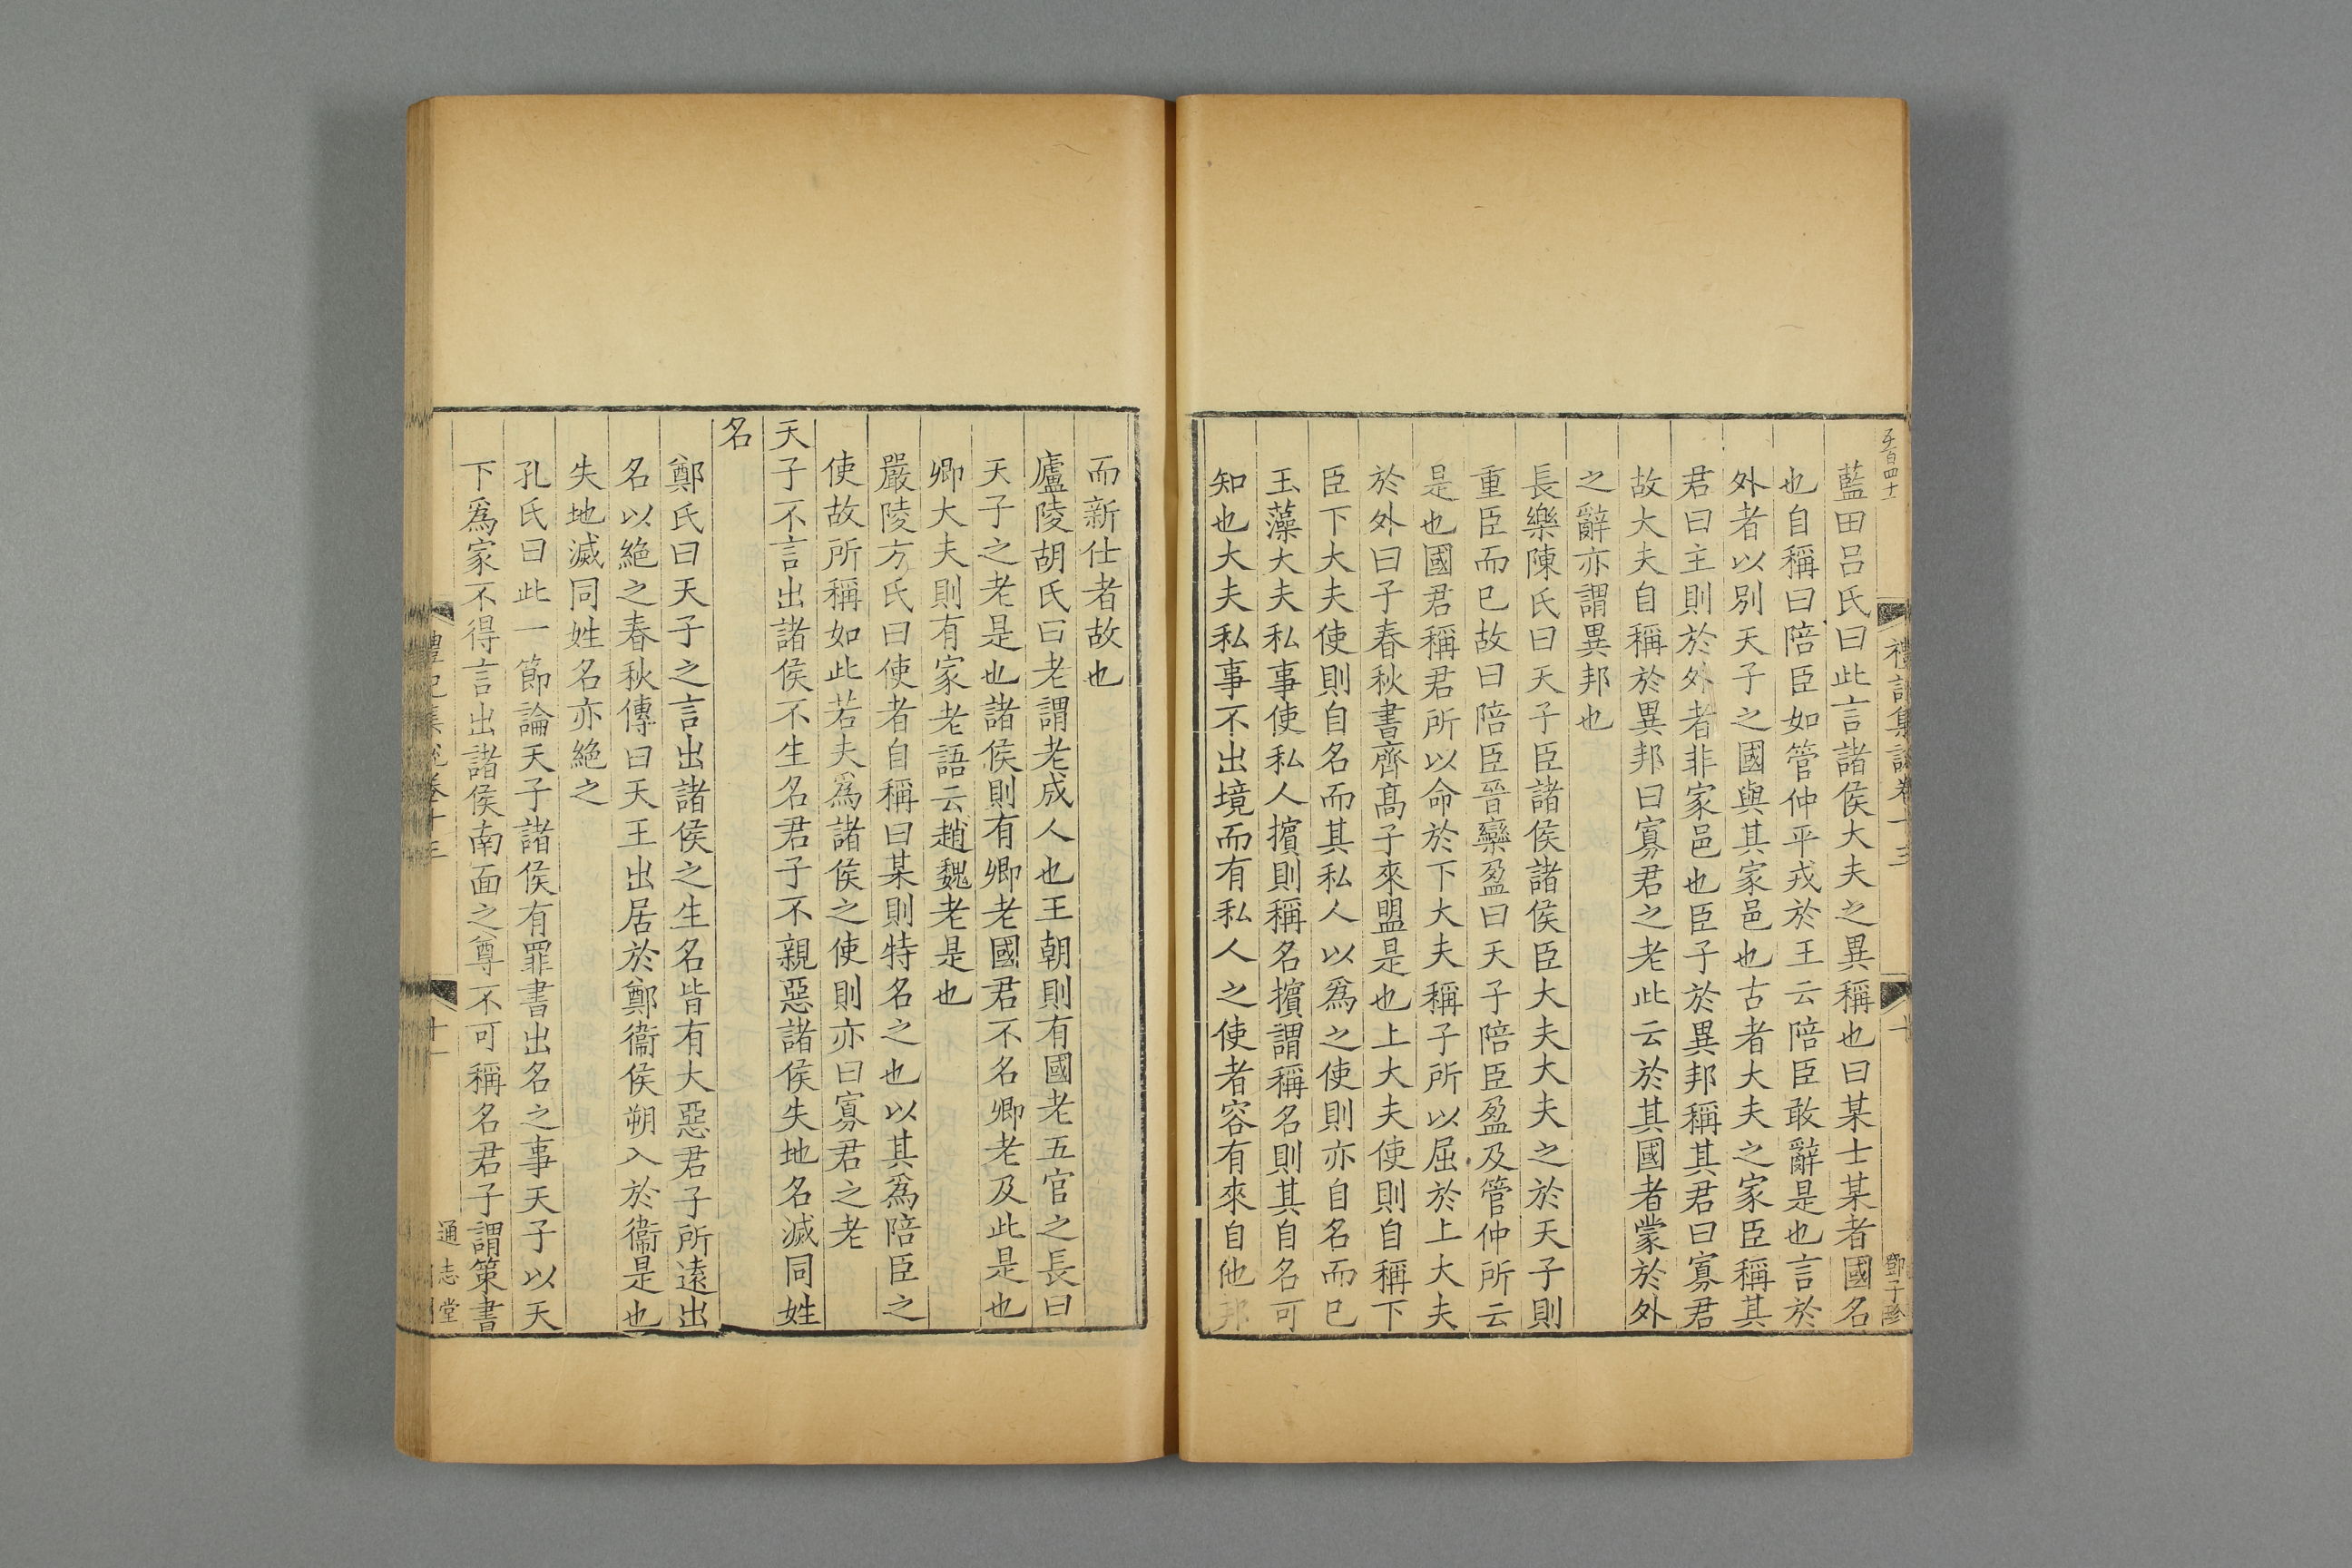 藍田呂氏曰此言諸侯大夫之異稱也曰某士某者國名
也自稱曰陪臣如管仲平戎於王云陪臣敢辭是也言於
外者以別天子之國與其家邑也古者大夫之家臣稱其
君曰主則於外者非家邑也臣子於異邦稱其君曰寡君
故大夫自稱於異邦曰寡君之老此云於其國者蒙於外
之辭亦謂異邦也
長樂陳氏曰天子臣諸侯諸侯臣大夫大夫之於天子則
重臣而已故曰陪臣晉欒盈曰天子陪臣盈及管仲所云
是也國君稱君所以命於下大夫稱子所以屈於上大夫
於外曰子春秋書齊髙子來盟是也上大夫使則自稱下
臣下大夫使則自名而其私人以爲之使則亦自名而已
玉藻大夫私事使私人擯則稱名擯謂稱名則其自名可
知也大夫私事不出境而有私人之使者容有來自他邦
而新仕者故也
廬陵胡氏曰老謂老成人也王朝則有國老五官之長曰
天子之老是也諸侯則有卿老國君不名卿老及此是也
卿大夫則有家老語云趙魏老是也
嚴陵方氏曰使者自稱曰某則特名之也以其爲陪臣之
使故所稱如此若夫爲諸侯之使則亦曰寡君之老
天子不言出諸侯不生名君子不親惡諸侯失地名滅同姓
名
鄭氏曰天子之言出諸侯之生名皆有大惡君子所遠出
名以絕之春秋傳曰天王出居於鄭衞侯朔入於衞是也
失地滅同姓名亦絕之
孔氏曰此一節論天子諸侯有罪書出名之事天子以天
下爲家不得言出諸侯南面之尊不可稱名君子謂策書
禮記集說卷十三
十一
通志堂